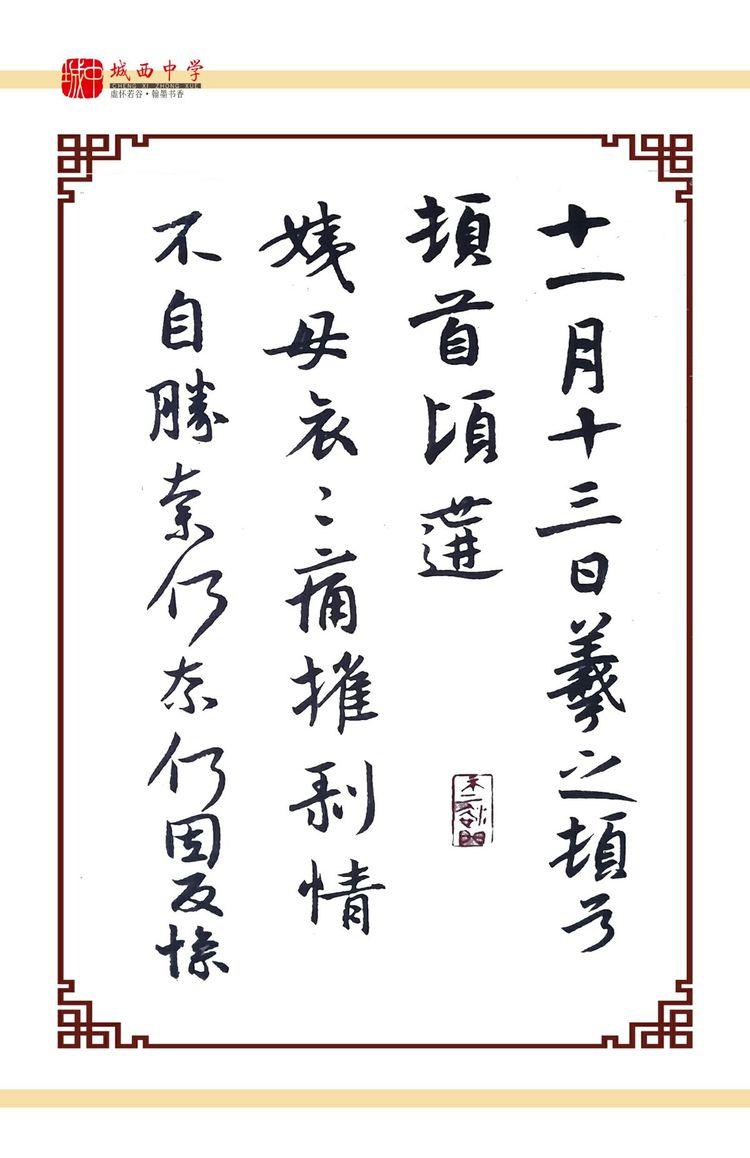 城中
城西中学
CHENG XI ZHONG XUE
虚怀若谷·翰墨书香
十一月十三日羲之頓首
頓首頃遘
姨母哀〻痛摧剥情
不自勝奈何奈何因反慘